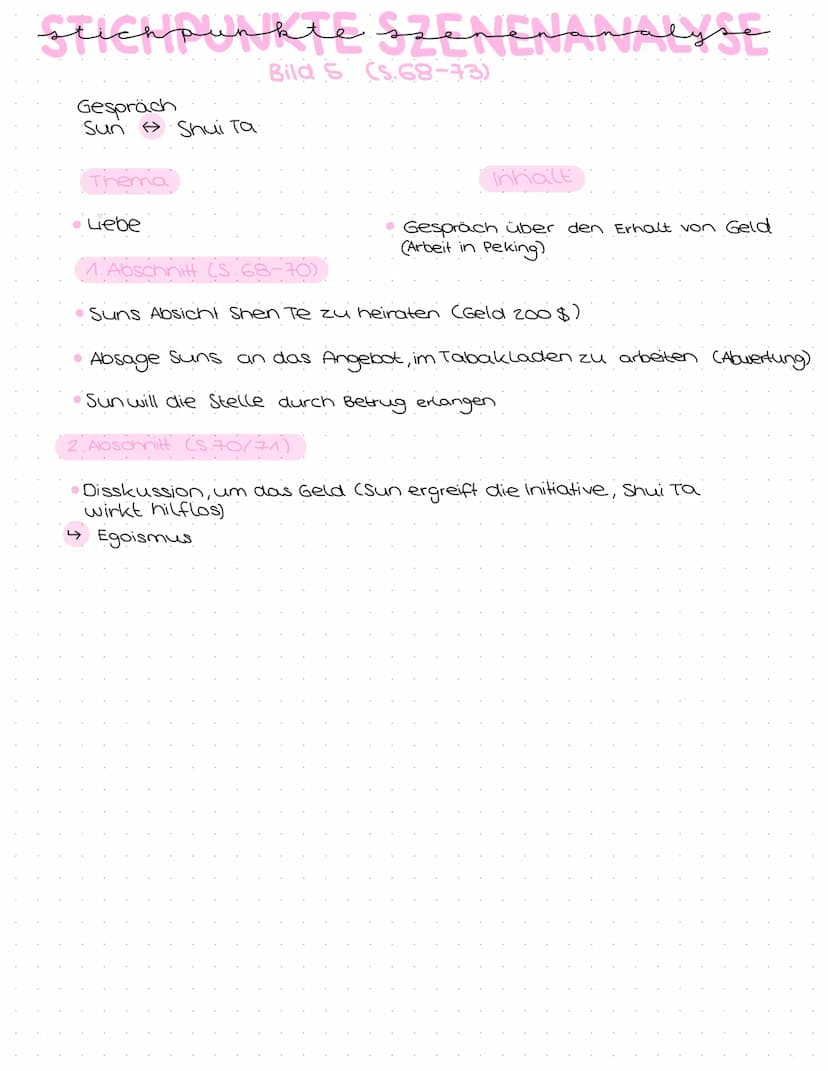 STICHPUNKTE SZENENANALYSE
stichpunkte szenenanalyse
Bild 5 (S.68-73)
Gespräch
Sun ↔ Shui Ta
Thema
Inhalt
• Liebe
• Gespräch über den Erhalt von Geld
(Arbeit in Peking)
1. Abschnitt (S. 68-70)
• Suns Absicht Shen Te zu heiraten (Geld 200 $)
• Absage Suns an das Angebot, im Tabakladen zu arbeiten (Abwertung)
• Sun will die Stelle durch Betrug erlangen
2. Abschnitt (S.70/71)
• Disskussion, um das Geld (Sun ergreift die Initiative, Shui Ta
wirkt hilflos)
↳ Egoismus